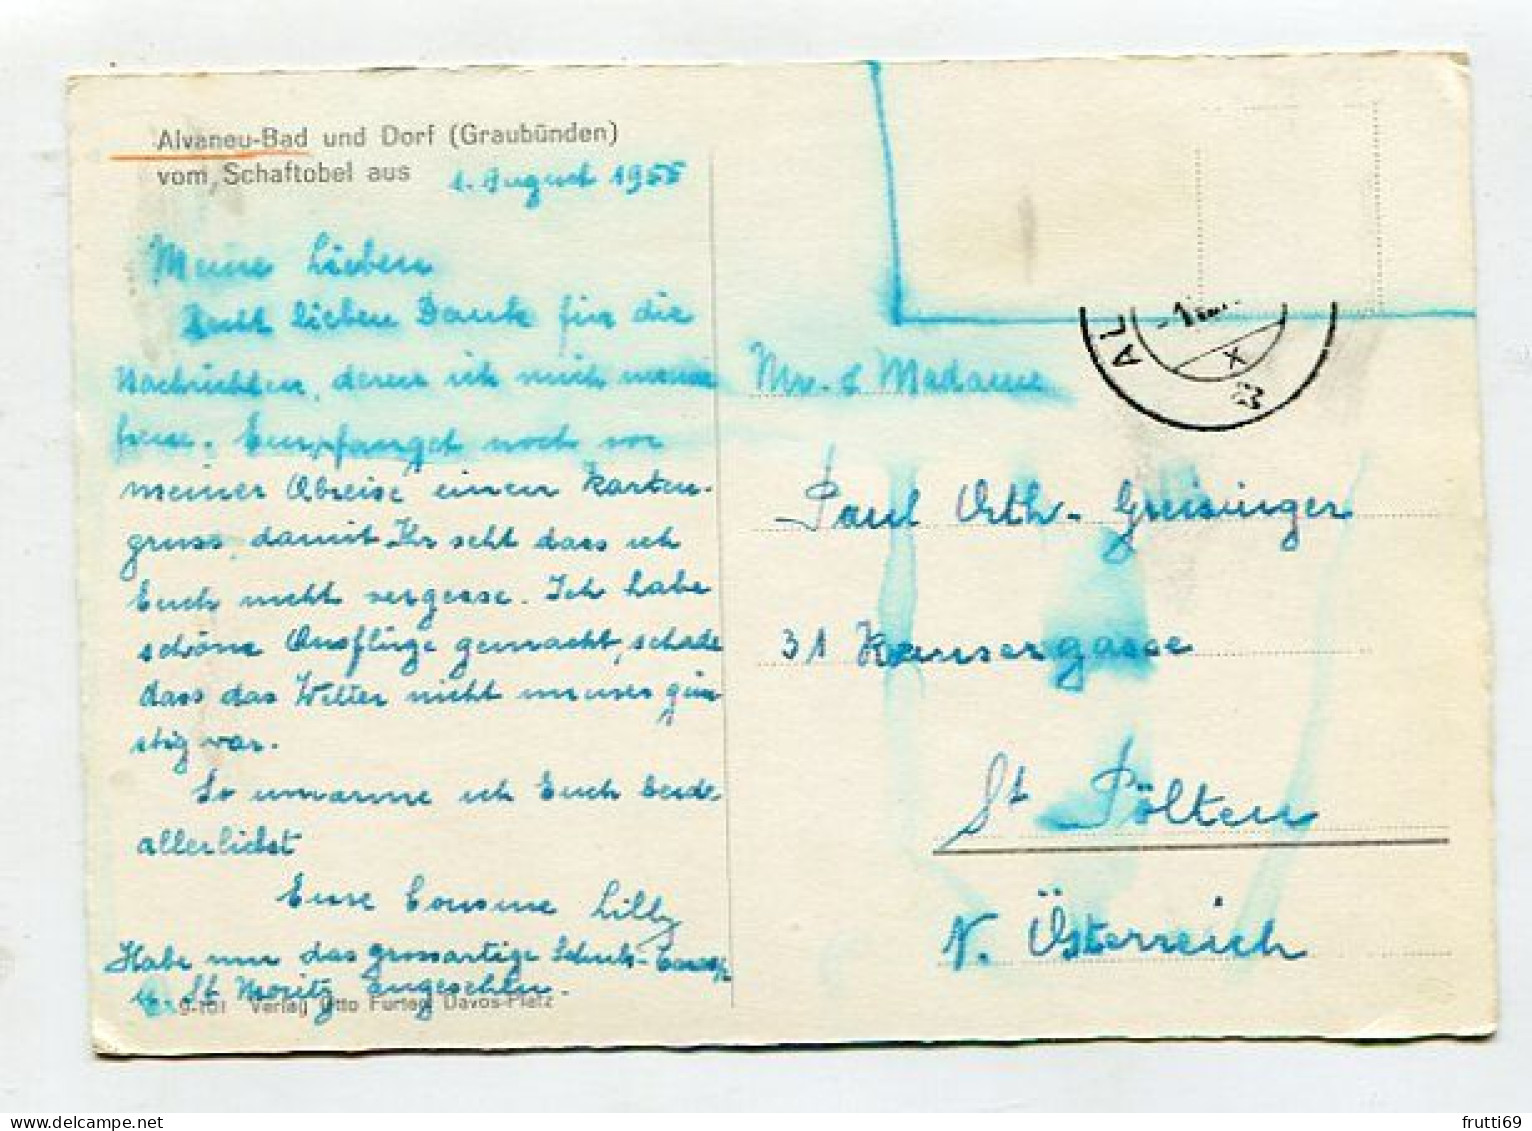 Alvaneu-Bad und Dorf (Graubünden)
vom Schaftobel aus
1. August 1955
Meine Lieben
lieben Dank für die
Nachrichten, deren ich mich
freue. Empfanget noch vor
meiner Abreise einen Karten-
gruss, damit Ihr seht dass ich
Euch nicht vergesse. Ich habe
schöne Ausflüge gemacht, schade
dass das Wetter nicht immer gün
stig war.
So umarme ich Euch beide
allerliebst
Eure Cousine Lilly
Habe nur das grossartige
St Moritz angesehen.
9-101 Verlag Otto Furter, Davos-Platz
AL
-1
X
Mr. & Madame
Paul Orth-Greisinger
31 Kaisergasse
St Pölten
N. Österreich
frutti69